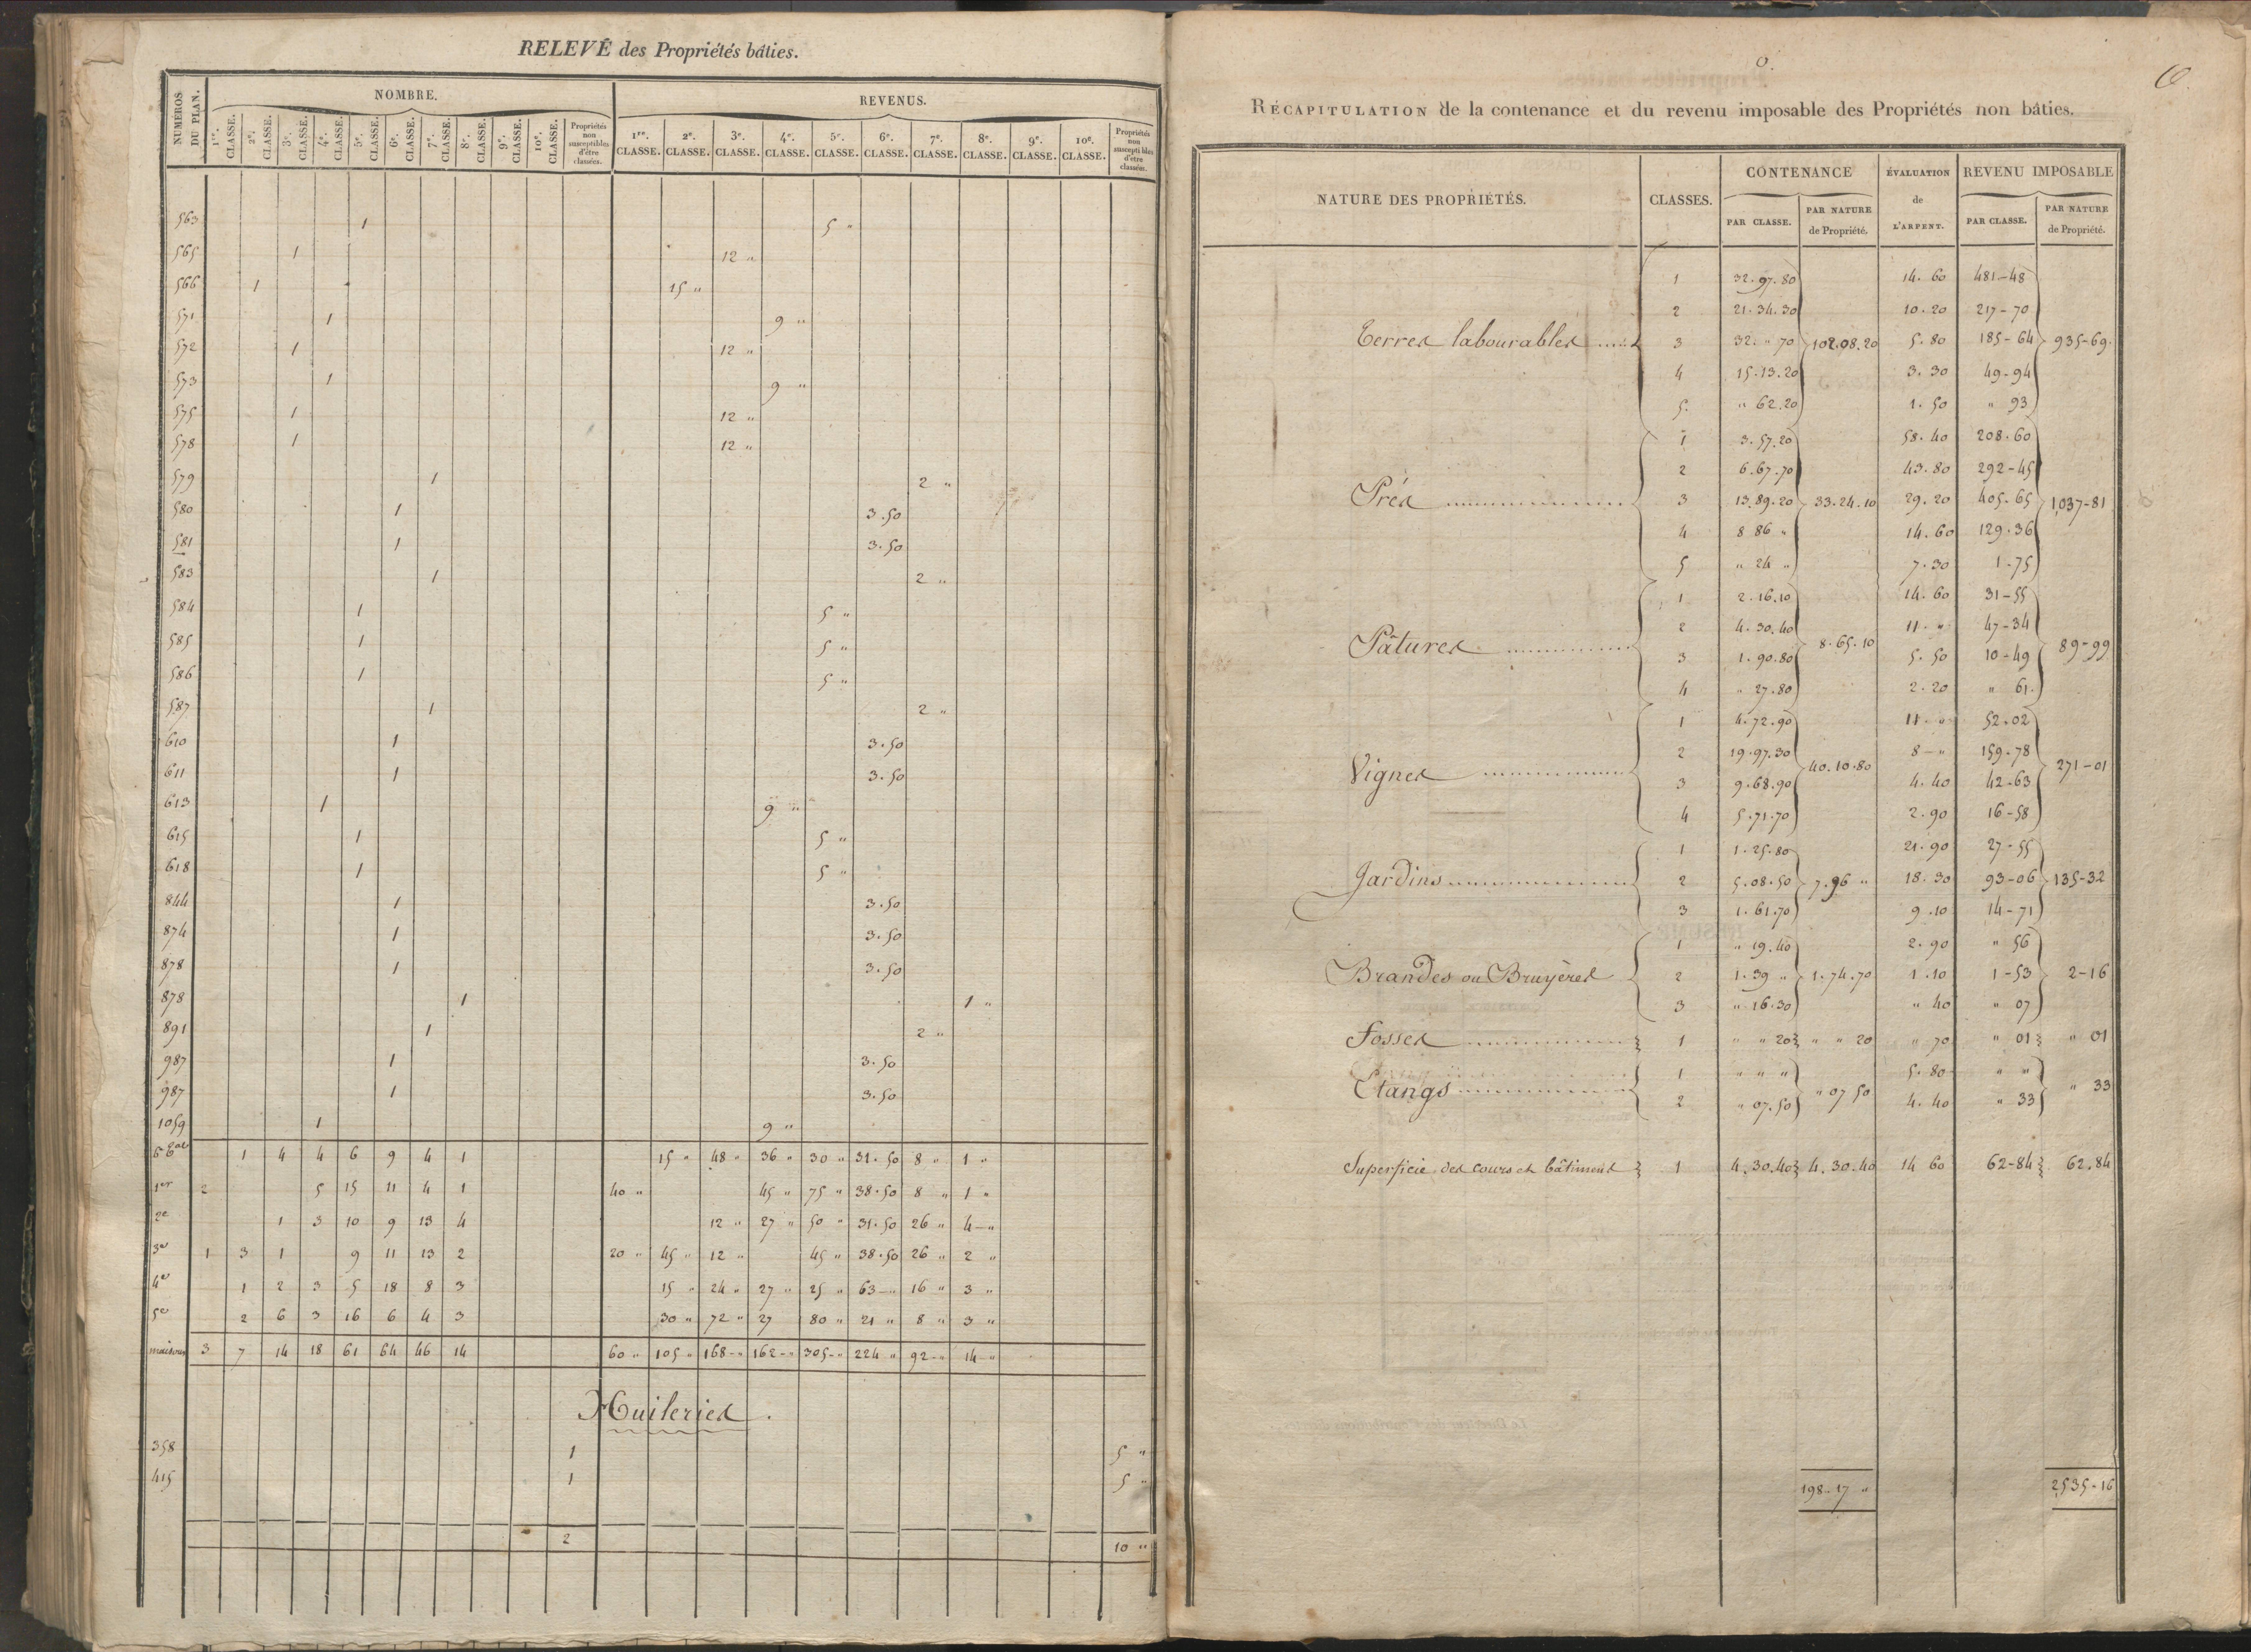 RELEVÉ des Propriétés bâties.
NUMÉROS DU PLAN. NOMBRE. REVENUS.
1re. CLASSE. 2e. CLASSE. 3e. CLASSE. 4e. CLASSE. 5e. CLASSE. 6e. CLASSE. 7e. CLASSE. 8e. CLASSE. 9e. CLASSE. 10e. CLASSE. Propriétés non susceptibles d'être classées. 1re. CLASSE. 2e. CLASSE. 3e. CLASSE. 4e. CLASSE. 5e. CLASSE. 6e. CLASSE. 7e. CLASSE. 8e. CLASSE. 9e. CLASSE. 10e. CLASSE. Propriétés non susceptibles d'être classées.
563 1 5 "
565 1 12 "
566 1 15 "
571 1 9 "
572 1 12 "
573 1 9 "
575 1 12 "
578 1 12 "
579 1 2 "
580 1 3.50
581 1 3.50
583 1 2 "
584 1 5 "
585 1 5 "
586 1 5 "
587 1 2 "
610 1 3.50
611 1 3.50
613 1 9 "
615 1 5 "
618 1 5 "
844 1 3.50
874 1 3.50
878 1 3.50
878 1 1 "
891 1 2 "
987 1 3.50
987 1 3.50
1059 1 9 "
1 4 4 6 9 4 1 15 " 48 " 36 " 30 " 31.50 8 " 1 "
1er 2 5 15 11 4 1 40 " 45 " 75 " 38.50 8 " 1 "
2e 1 3 10 9 13 4 12 " 27 " 50 " 31.50 26 " 4 - "
3e 1 3 1 9 11 13 2 20 " 45 " 12 " 45 " 38.50 26 " 2 "
4e 1 2 3 5 18 8 3 15 " 24 " 27 " 25 " 63 - " 16 " 3 "
5e 2 6 3 16 6 4 3 30 " 72 " 27 80 " 21 " 8 " 3 "
maisons 3 7 14 18 61 64 46 14 60 " 105 " 168 - " 162 - " 305 - " 224 " 92 - " 14 - "
Huileries.
358 1 5 "
415 1 5 "
2 10 "
6.
RÉCAPITULATION de la contenance et du revenu imposable des Propriétés non bâties.
NATURE DES PROPRIÉTÉS. CLASSES. CONTENANCE ÉVALUATION de L'ARPENT. REVENU IMPOSABLE
PAR CLASSE. PAR NATURE de Propriété. PAR CLASSE. PAR NATURE de Propriété.
1 32.97.80 14.60 481-48
2 21.34.30 10.20 217-70
Terres labourables 3 32. " 70 102.08.20 5.80 185-64 935-69.
4 15.13.20 3.30 49-94
5. " 62.20 1.50 " 93
1 3.57.20 58.40 208.60
2 6.67.70 43.80 292-45
Prés 3 13.89.20 33.24.10 29.20 405.65 1,037-81
4 8 86 " 14.60 129.36
5 " 24 " 7.30 1-75
1 2.16.10 14.60 31-55
2 4.30.40 11. " 47-34
Pâtures 8.65.10 89-99
3 1.90.80 5.50 10-49
4 " 27.80 2.20 " 61.
1 4.72.90 11. " 52.02
2 19.97.30 8 - " 159-78
Vignes 40.10.80 271-01
3 9.68.90 4.40 42-63
4 5.71.70 2.90 16-58
1 1.25.80 21.90 27-55
Jardins 2 5.08.50 7.96 " 18.30 93-06 135-32
3 1.61.70 9.10 14-71
1 " 19.40 2.90 " 56
Brandes ou Bruyères 2 1.39 " 1.74.70 1.10 1-53 2-16
3 " 16.30 " 40 " 07
Fosses 1 " " 20 " " 20 " 70 " 01 " 01
1 " " " 5.80 " "
Etangs " 07 50 " 33
2 " 07.50 4.40 " 33
Superficie des cours et bâtiments 1 4.30.40 4.30.40 14 60 62-84 62.84
198-17 " 2535-16